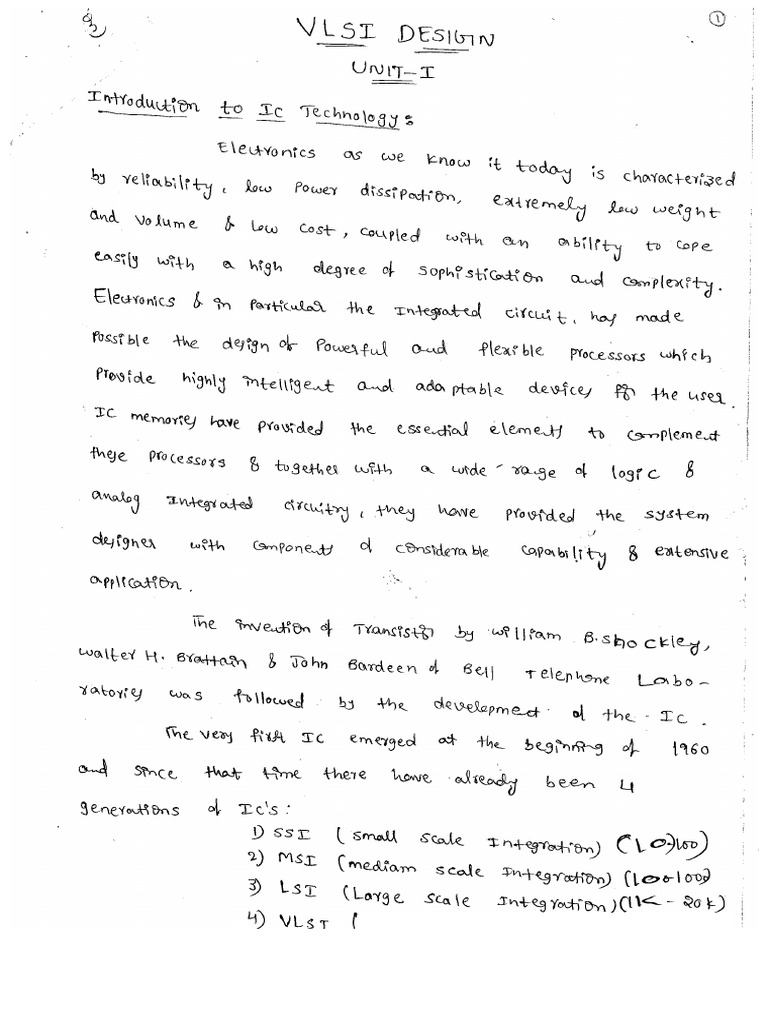 ①
VLSI DESIGN
UNIT-I
Introduction to Ic Technology:
Electronics as we know it today is characterized
by reliability, low power dissipation, extremely low weight
and volume & low cost, coupled with an ability to cope
easily with a high degree of sophistication and complexity.
Electronics & in particular the Integrated circuit, has made
possible the design of powerful and flexible processors which
provide highly intelligent and adaptable devices for the user.
IC memories have provided the essential elements to complement
these processors & together with a wide range of logic &
analog integrated circuitry, they have provided the system
designer with components of considerable capability & extensive
application.
The invention of Transistor by william B. shockley,
walter H. Brattain & John Bardeen of Bell Telephone Labo-
ratories was followed by the development of the IC.
The very first IC emerged at the beginning of 1960
and since that time there have already been 4
generations of Ic's:
1) SSI (small scale Integration) (10-100)
2) MSI (mediam scale Integration) (100-1000)
3) LSI (Large scale Integration) (1K - 20K)
4) VLSI (